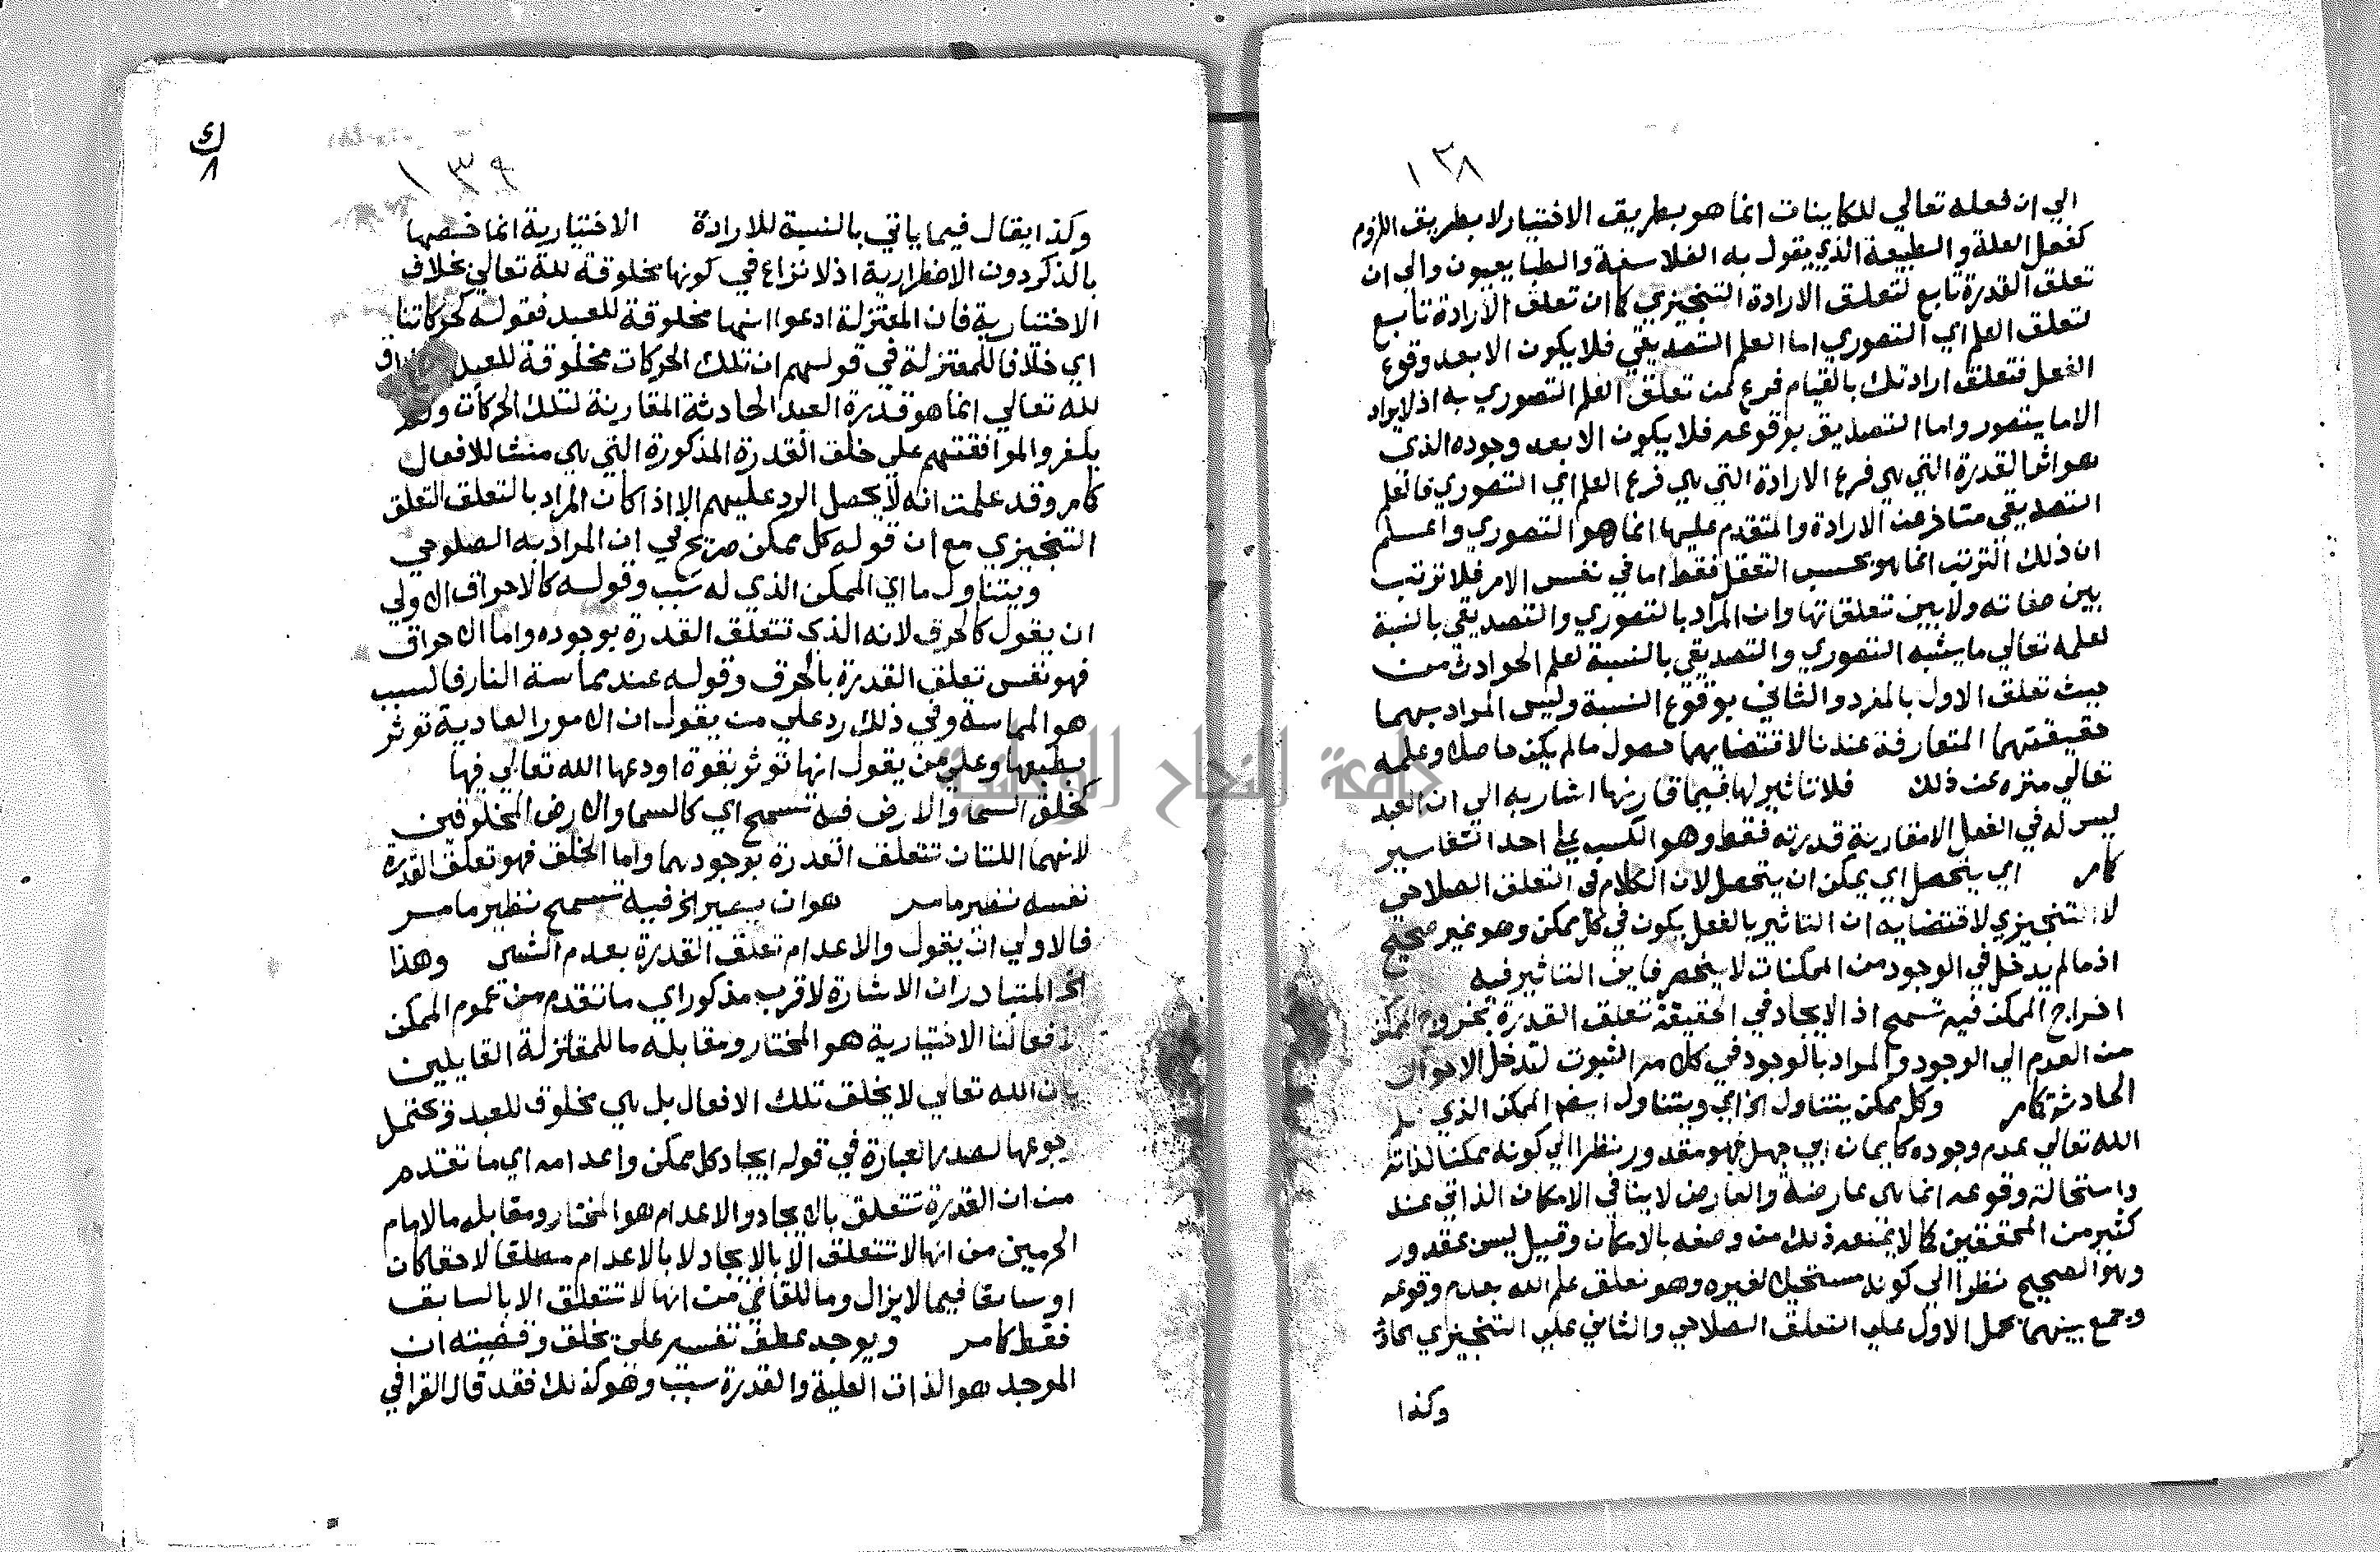 ١٣٨
الي ان فعله تعالي للكاينات انما هو بطريق الاختيار لا بطريق اللزوم
كفعل العلة والطبيعة الذي يقول به الفلاسفة والطبايعيون والى ان
تعلق القدرة تابع لتعلق الارادة التنجيزي كما ان تعلق الارادة تابع
لتعلق العلم اي التصوري اما العلم التصديقي فلا يكون الا بعد وقوع
الفعل فتعلق ارادتك بالقيام فرع عن تعلق العلم التصوري به اذ لا يراد
الا ما يتصور واما التصديق بوقوعه فلا يكون الا بعد وجوده الذي
هو اثر القدرة التي هي فرع الارادة التي هي فرع العلم اي التصوري فالعلم
التصديقي متاخر عن الارادة والمتقدم عليها انما هو التصوري واعلم
ان ذلك الترتب انما هو بحسب التعقل فقط اما في نفس الامر فلا ترتيب
بين صفاته ولا بين تعلقاتها وان المراد بالتصوري والتصديقي بالنسبة
لعلمه تعالي ما يشبه التصوري والتصديقي بالنسبة لعلم الحوادث من
حيث تعلق الاول بالمفرد والثاني بوقوع النسبة وليس المراد بهما
حقيقتهما المتعارفة عندنا لاقتضايهما حصول ما لم يكن حاصلا وعلمه
تعالي منزه عن ذلك فلا تاثير لها فيما قارنها اشار به الي ان العبد
ليس له في الفعل الا مقارنة قدرته فقط وهو الكسب علي احد التفاسير
كما مر اي يتحصل اي يمكن ان يتحصل لان الكلام في التعلق الصلاحي
لا التنجيزي لاقتضايه ان التاثير بالفعل يكون في كل ممكن وهو غير صحيح
اذ ما لم يدخل في الوجود من الممكنات لا ينحصر فاين التاثير فيه
اخراج الممكن فيه تسمح اذ الايجاد في الحقيقة تعلق القدرة بخروج الممكن
من العدم الي الوجود والمراد بالوجود في كلامه الثبوت لتدخل الاحوال
الحادثة كما مر وكل ممكن يتناول الخ اي ويتناول ايضا الممكن الذي علم
الله تعالي عدم وجوده كايمان ابي جهل فهو مقدور نظرا الي كونه ممكنا لذاته
واستحالة وقوعه انما هي عارضة والعارض لا ينافي الامكان الذاتي عند
كثير من المحققين كما لا يمنعه ذلك من وصفه بالامكان وقيل ليس بمقدور
وهو الصحيح نظرا الي كونه مستحيلا لغيره وهو تعلق علم الله بعدم وقوعه
وجمع بينهما بحمل الاول علي التعلق الصلاحي والثاني علي التنجيزي الحادث
وكذا
١٣٩
ك
٨
وكذا يقال فيما ياتي بالنسبة للارادة الاختيارية انما خصها
بالذكر دون الاضطرارية اذ لا نزاع في كونها مخلوقة لله تعالي بخلاف
الاختيارية فان المعتزلة ادعوا انها مخلوقة للعبد فقوله كحركاتنا
اي خلافا للمعتزلة في قولهم ان تلك الحركات مخلوقة للعبد
لله تعالي انما هو قدرة العبد الحادثة المقارنة لتلك الحركات ولم
يكفروا لموافقتهم علي خلق القدرة المذكورة التي هي منشا للافعال
كما مر وقد علمت انه لا يحصل الرد عليهم الا اذا كان المراد بالتعلق التعلق
التنجيزي مع ان قوله كل ممكن صريح في ان المراد به الصلوحي
ويتناول ما اي الممكن الذي له سبب وقوله كالاحراق الاولي
ان يقول كالحرق لانه الذي تتعلق القدرة بوجوده واما الاحراق
فهو نفس تعلق القدرة بالحرق وقوله عند مماسة النار فالسبب
هو المماسة وفي ذلك رد علي من يقول ان الامور العادية توثر
بطبعها وعلي من يقول انها توثر بقوة اودعها الله تعالي فيها
كخلق السما والارض فيه تسمح اي كالسما والارض المخلوقين
لانهما اللتان تتعلق القدرة بوجودهما واما الخلق فهو تعلق القدرة
نفسه نظير ما مر هو ان يصير الخ فيه تسمح نظير ما مر
فالاولي ان يقول والاعدام تعلق القدرة بعدم الشي وهذا
الخ المتبادر ان الاشارة لاقرب مذكور اي ما تقدم من عموم الممكن
لافعالنا الاختيارية هو المختار ومقابله ما للمعتزلة القايلين
بان الله تعالي لا يخلق تلك الافعال بل هي مخلوق للعبد ويحتمل
رجوعها لصدر العبارة في قوله ايجاد كل ممكن واعدامه اي ما تقدم
من ان القدرة تتعلق بالايجاد والاعدام هو المختار ومقابله ما لامام
الحرمين من انها لا تتعلق الا بالايجاد لا بالاعدام مطلقا لاحقا كان
او سابقا فيما لا يزال وما للقاني من انها لا تتعلق الا بالسابق
فقط كما مر ويوجد عطف تفسير علي يخلق وقضيته ان
الموجد هو الذات العلية والقدرة سبب وهو كذلك فقد قال القرافي
جامعة النجاح الوطنية